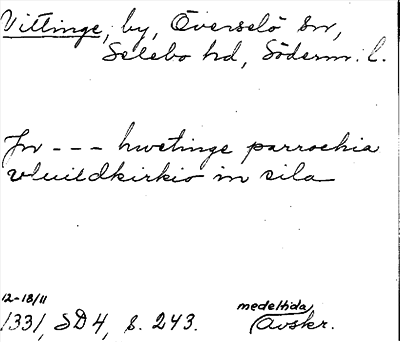 Vittinge, by, Överselö sn,
Selebo hd, Söderm. l.
Jn --- hwetinge parrochia
vluildkirkio in sila
12-18/11
1331, SD 4, s. 243.
medeltida
Avskr.